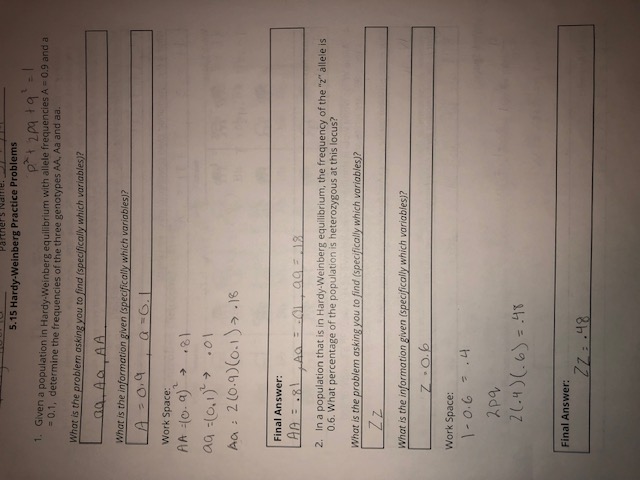 Partner's Name:
5.15 Hardy-Weinberg Practice Problems
p² + 2pq + q² = 1
1. Given a population in Hardy-Weinberg equilibrium with allele frequencies A = 0.9 and a
= 0.1, determine the frequencies of the three genotypes AA, Aa and aa.
What is the problem asking you to find (specifically which variables)?
aa, Aa, AA
What is the information given (specifically which variables)?
A = 0.9, a = 0.1
Work Space:
AA = (0.9)² → .81
aa = (0.1)² → .01
Aa : 2(0.9)(0.1) → .18
Final Answer:
AA = .81, Aa = .01, aa = .18
2. In a population that is in Hardy-Weinberg equilibrium, the frequency of the "z" allele is
0.6. What percentage of the population is heterozygous at this locus?
What is the problem asking you to find (specifically which variables)?
Zz
What is the information given (specifically which variables)?
z = 0.6
Work Space:
1 - 0.6 = .4
2pq
2(.4)(.6) = .48
Final Answer:
Zz = .48